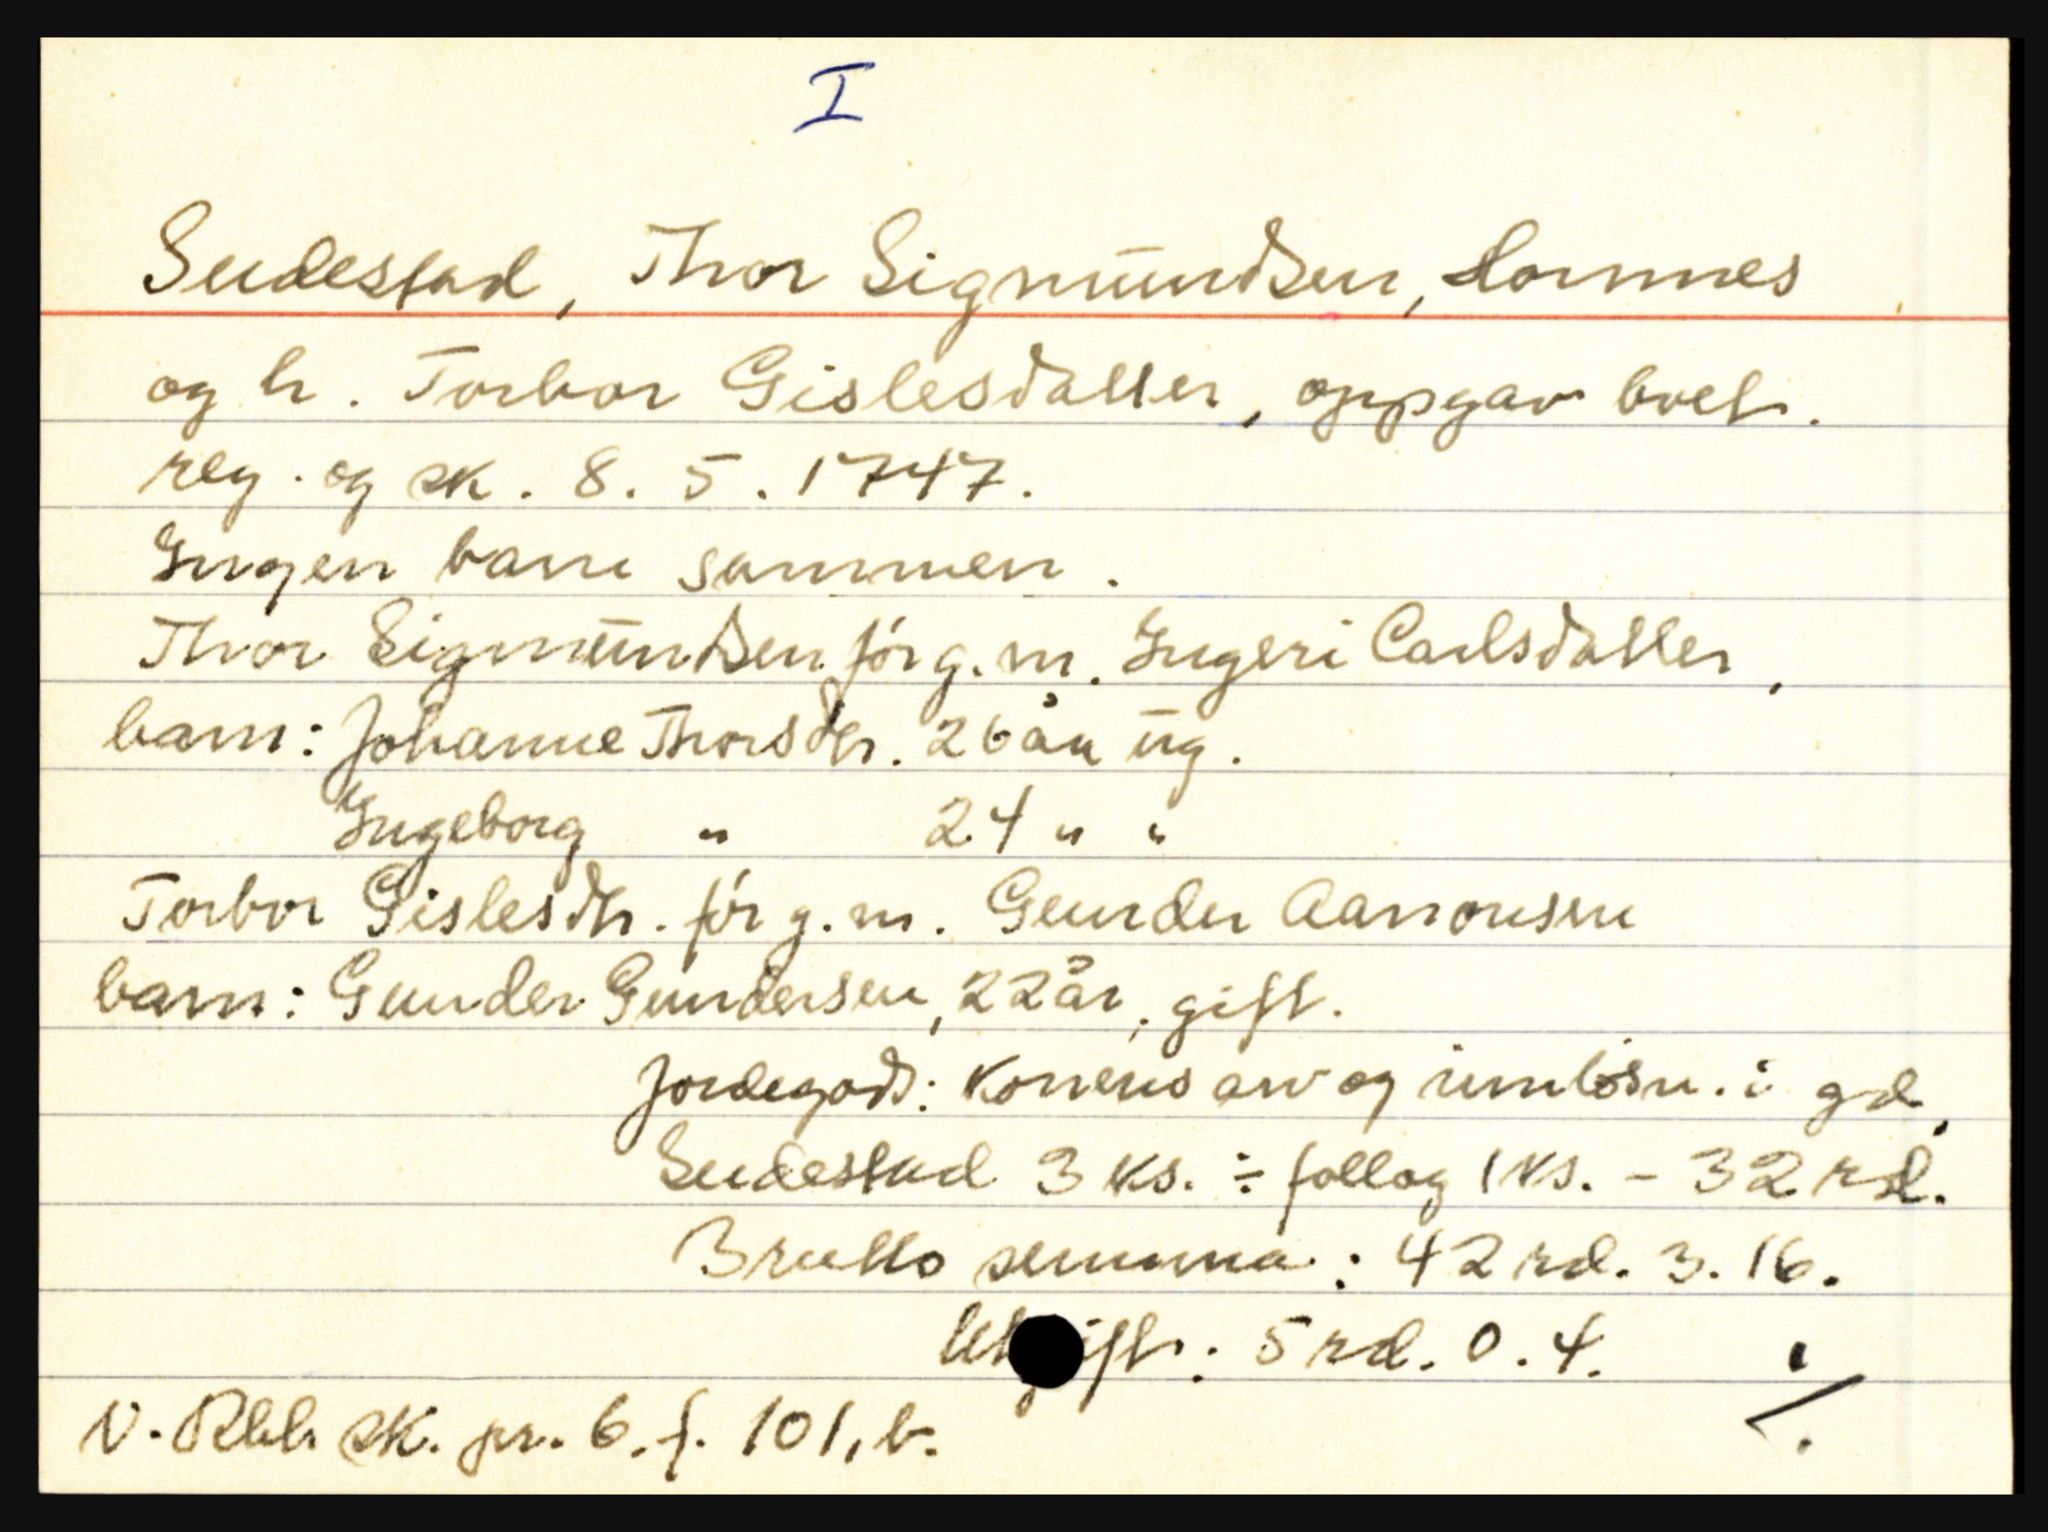 I
Sudestad, Thor Sigmundsen, Hornnes
og h. Torbor Gislesdatter, oppgav boet.
reg. og sk. 8. 5. 1747.
Ingen barn sammen.
Thor Sigmundsen før g. m. Ingeri Carlsdatter,
barn: Johanne Thorsdtr. 26 år ug.
Ingeborg " 24 " "
Torbor Gislesdtr. før g. m. Gunder Aanonsen
barn: Gunder Gundersen, 22 år, gift.
Jordegods: Konens arv og innløsn. i gd.
Sudestad 3 ks. ÷ follog 1 ks. - 32 rd.
Brutto summa: 42 rd. 3. 16.
Utgift: 5 rd. 0. 4. ./.
N. Rbl. sk. pr. 6. f. 101, b.